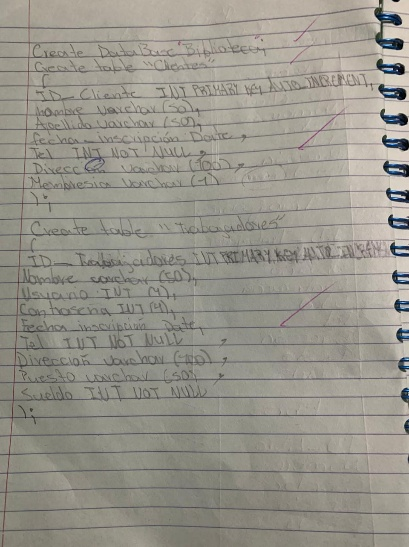 Create DataBase "Biblioteca;
Create table "Clientes"
(
ID_Cliente INT PRIMARY KEY AUTO_INCREMENT,
nombre varchar (50),
Apellido varchar (50),
fecha_inscripción Date,
Tel INT NOT NULL,
Direcc n varchar (100),
Membresia varchar (1)
);
Create table "Trabajadores"
(
ID_Trabajadores INT PRIMARY KEY AUTO_INCREM
Nombre varchar (50),
Usuario INT (4),
Contraseña INT (4),
Fecha inscripción Date,
Tel INT NOT NULL,
Dirección varchar (100),
Puesto varchar (50),
Sueldo INT NOT NULL
);